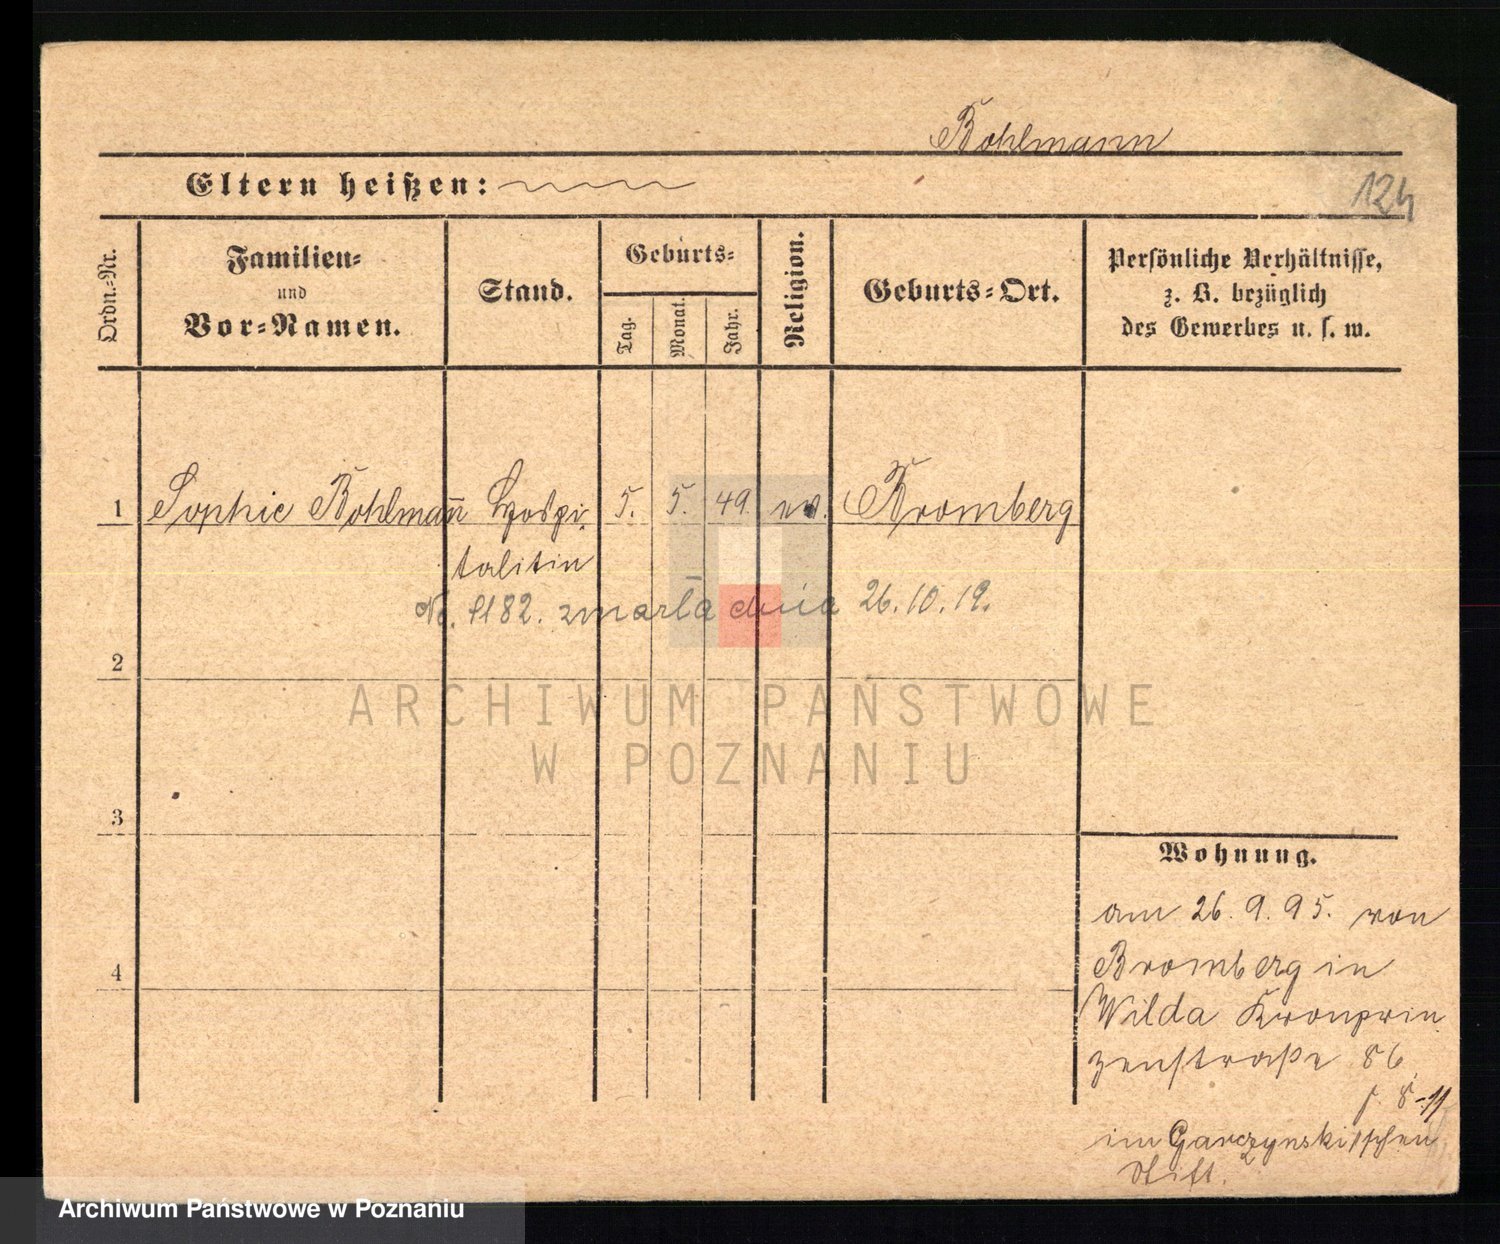 Bohlmann
Eltern heißen:
124
Ordn.-Nr.
Familien-
und
Vor-Namen.
Stand.
Geburts-
Tag.
Monat.
Jahr.
Religion.
Geburts-Ort.
Persönliche Verhältnisse,
z. B. bezüglich
des Gewerbes u. s. w.
1 Sophie Bohlman̄ Hospi- 5. 5. 49. ev. Bromberg
talitin
No. 1182. zmarła dnia 26.10.19.
2
ARCHIWUM PAŃSTWOWE
W POZNANIU
3
Wohnung.
am 26.9.95. von
4
Bromberg in
Wilda Kronprin
zenstraße 86
im Garczynski'schen
Stift.
Archiwum Państwowe w Poznaniu